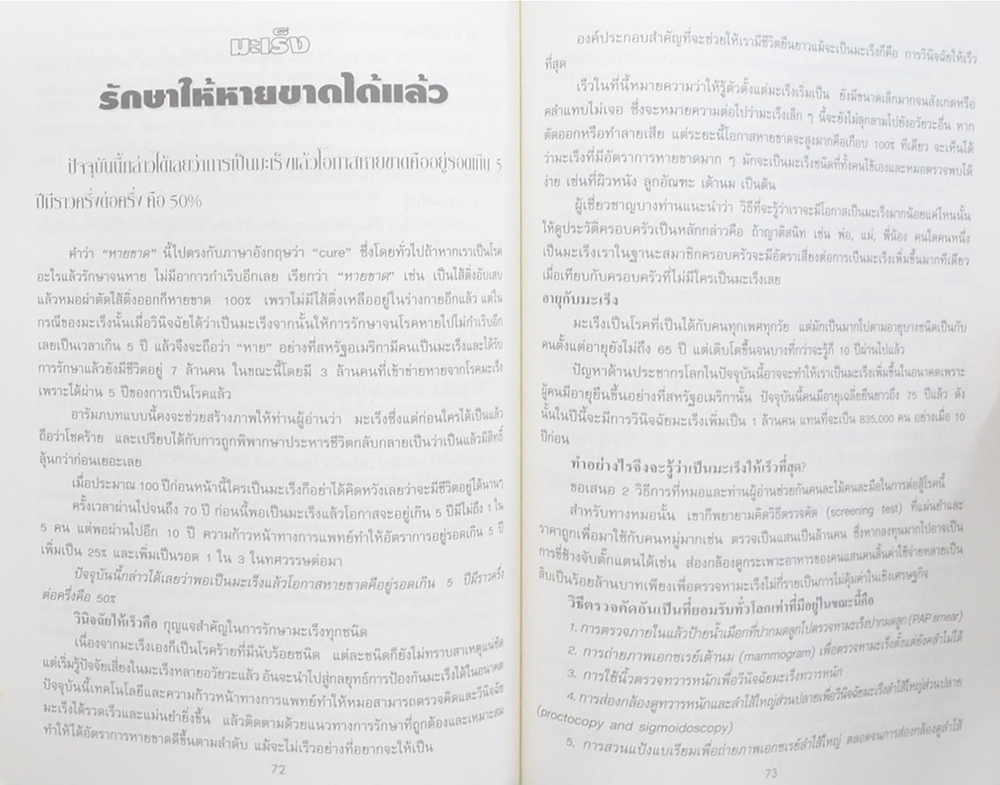 มะเร็ง
รักษาให้หายขาดได้แล้ว
ปัจจุบันนี้กล่าวได้เลยว่าการเป็นมะเร็งแล้วโอกาสหายขาดคืออยู่รอดเกิน 5
ปีมีราวครึ่งต่อครึ่ง คือ 50%
คำว่า "หายขาด" นี้ไปตรงกับภาษาอังกฤษว่า "cure" ซึ่งโดยทั่วไปถ้าหากเราเป็นโรค
อะไรแล้วรักษาจนหาย ไม่มีอาการกำเริบอีกเลย เรียกว่า "หายขาด" เช่น เป็นไส้ติ่งอับเสบ
แล้วหมอผ่าตัดไส้ติ่งออกก็หายขาด 100% เพราะไม่มีไส้ติ่งเหลืออยู่ในร่างกายอีกแล้ว แต่ใน
กรณีของมะเร็งนั้นเมื่อวินิจฉัยได้ว่าเป็นมะเร็งจากนั้นให้การรักษาจนโรคหายไปไม่กำเริบอีก
เลยเป็นเวลาเกิน 5 ปี แล้วจึงจะถือว่า "หาย" อย่างที่สหรัฐอเมริกามีคนเป็นมะเร็งและได้รับ
การรักษาแล้วยังมีชีวิตอยู่ 7 ล้านคน ในขณะนี้โดยมี 3 ล้านคนที่เข้าข่ายหายจากโรคมะเร็ง
เพราะได้ผ่าน 5 ปีของการเป็นโรคแล้ว
อารัมภบทแบบนี้คงจะช่วยสร้างภาพให้ท่านผู้อ่านว่า มะเร็งซึ่งแต่ก่อนใครได้เป็นแล้ว
ถือว่าโชคร้าย และเปรียบได้กับการถูกพิพากษาประหารชีวิตกลับกลายเป็นว่าเป็นแล้วมีสิทธิ์
ลุ้นกว่าก่อนเยอะเลย
เมื่อประมาณ 100 ปีก่อนหน้านี้ใครเป็นมะเร็งก็อย่าได้คิดหวังเลยว่าจะมีชีวิตอยู่ได้นานๆ
ครั้งเวลาผ่านไปจนถึง 70 ปี ก่อนนี้พอเป็นมะเร็งแล้วโอกาสจะอยู่เกิน 5 ปีมีไม่ถึง 1 ใน
5 คน แต่พอผ่านไปอีก 10 ปี ความก้าวหน้าทางการแพทย์ทำให้อัตราการอยู่รอดเกิน 5 ปี
เพิ่มเป็น 25% และเพิ่มเป็นรอด 1 ใน 3 ในทศวรรษต่อมา
ปัจจุบันนี้กล่าวได้เลยว่าพอเป็นมะเร็งแล้วโอกาสหายขาดคืออยู่รอดเกิน 5 ปีมีราวครึ่ง
ต่อครึ่งคือ 50%
วินิจฉัยให้เร็วคือ กุญแจสำคัญในการรักษามะเร็งทุกชนิด
เนื่องจากมะเร็งเองก็เป็นโรคร้ายที่มีนับร้อยชนิด แต่ละชนิดก็ยังไม่ทราบสาเหตุแน่ชัด
แต่เริ่มรู้ปัจจัยเสี่ยงในมะเร็งหลายอวัยวะแล้ว อันจะนำไปสู่กลยุทธ์การป้องกันมะเร็งได้ในอนาคต
ปัจจุบันนี้เทคโนโลยีและความก้าวหน้าทางการแพทย์ทำให้หมอสามารถตรวจคิดและวินิจฉัย
มะเร็งได้รวดเร็วและแม่นยำยิ่งขึ้น แล้วติดตามด้วยแนวทางการรักษาที่ถูกต้องและเหมาะสม
ทำให้ได้อัตราการหายขาดดีขึ้นตามลำดับ แม้จะไม่เร็วอย่างที่อยากจะให้เป็น
72
องค์ประกอบสำคัญที่จะช่วยให้เรามีชีวิตยืนยาวแม้จะเป็นมะเร็งก็คือ การวินิจฉัยให้เร็ว
ที่สุด
เร็วในที่นี้หมายความว่าให้รู้ตัวตั้งแต่มะเร็งเริ่มเป็น ยังมีขนาดเล็กมากจนสังเกตหรือ
คลำแทบไม่เจอ ซึ่งจะหมายความต่อไปว่ามะเร็งเล็ก ๆ นี้จะยังไม่ลุกลามไปยังอวัยวะอื่น หาก
ตัดออกหรือทำลายเสีย แต่ระยะนี้โอกาสหายขาดจะสูงมากคือเกือบ 100% ทีเดียว จะเห็นได้
ว่ามะเร็งที่มีอัตราการหายขาดมาก ๆ มักจะเป็นมะเร็งชนิดที่ทั้งคนไข้เองและหมอตรวจพบได้
ง่าย เช่นที่ผิวหนัง ลูกอัณฑะ เต้านม เป็นต้น
ผู้เชี่ยวชาญบางท่านแนะนำว่า วิธีที่จะรู้ว่าเราจะมีโอกาสเป็นมะเร็งมากน้อยแค่ไหนนั้น
ให้ดูประวัติครอบครัวเป็นหลักกล่าวคือ ถ้าญาติสนิท เช่น พ่อ, แม่, พี่น้อง คนใดคนหนึ่ง
เป็นมะเร็งเราในฐานะสมาชิกครอบครัวจะมีอัตราเสี่ยงต่อการเป็นมะเร็งเพิ่มขึ้นมากทีเดียว
เมื่อเทียบกับครอบครัวที่ไม่มีใครเป็นมะเร็งเลย
อายุกับมะเร็ง
มะเร็งเป็นโรคที่เป็นได้กับคนทุกเพศทุกวัย แต่มักเป็นมากไปตามอายุบางชนิดเป็นกับ
คนตั้งแต่อายุยังไม่ถึง 65 ปี แต่เติบโตขึ้นจนบางที่กว่าจะรู้ก็ 10 ปีผ่านไปแล้ว
ปัญหาด้านประชากรโลกในปัจจุบันนี้อาจจะทำให้เราเป็นมะเร็งเพิ่มขึ้นในอนาคตเพราะ
ผู้คนมีอายุยืนขึ้นอย่างที่สหรัฐอเมริกานั้น ปัจจุบันนี้คนมีอายุเฉลี่ยยืนยาวถึง 75 ปีแล้ว ดัง
นั้นในปีนี้จะมีการวินิจฉัยมะเร็งเพิ่มเป็น 1 ล้านคน แทนที่จะเป็น 835,000 คน อย่างเมื่อ 10
ปีก่อน
ทำอย่างไรจึงจะรู้ว่าเป็นมะเร็งให้เร็วที่สุด?
ขอเสนอ 2 วิธีการที่หมอและท่านผู้อ่านช่วยกันคนละไม้คนละมือในการต่อสู้โรคนี้
สำหรับทางหมอนั้น เขาก็พยายามคิดวิธีตรวจคัด (screening test) ที่แม่นยำและ
ราคาถูกเพื่อมาใช้กับคนหมู่มากเช่น ตรวจเป็นแสนเป็นล้านคน ซึ่งหากลงทุนมากไปอาจเป็น
การขี่ช้างจับตั๊กแตนได้เช่น ส่องกล้องดูกระเพาะอาหารของคนแสนคนสิ้นค่าใช้จ่ายหลายเป็น
สิบเป็นร้อยล้านบาทเพียงเพื่อตรวจหามะเร็งไม่กี่รายเป็นการไม่คุ้มค่าในเชิงเศรษฐกิจ
วิธีตรวจคัดอันเป็นที่ยอมรับทั่วโลกเท่าที่มีอยู่ในขณะนี้คือ
1. การตรวจภายในแล้วป้ายน้ำเมือกที่ปากมดลูกไปตรวจหามะเร็งปากมดลูก (PAP smear)
2. การถ่ายภาพเอกซเรย์เต้านม (mammogram) เพื่อตรวจหามะเร็งตั้งแต่ยังคลำไม่ได้
3. การใช้นิ้วตรวจทวารหนักเพื่อวินิจฉัยมะเร็งทวารหนัก
4. การส่องกล้องดูทวารหนักและลำไส้ใหญ่ส่วนปลายเพื่อวินิจฉัยมะเร็งลำไส้ใหญ่ส่วนปลาย
(proctocopy and sigmoidoscopy)
5. การสวนแป้งแบเรียมเพื่อถ่ายภาพเอกซเรย์ลำไส้ใหญ่ ตลอดจนการส่องกล้องดูลำไส้
73